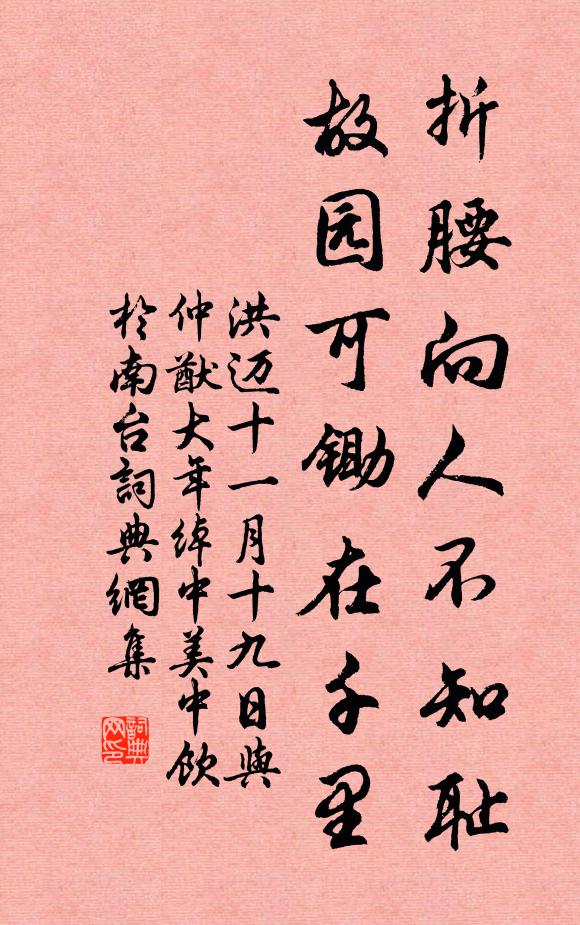 折腰向人不知耻
故园可锄在千里
洪迈十一月十九日與
仲猷大年绰中美中饮
於南台詞典網集
詞典网印